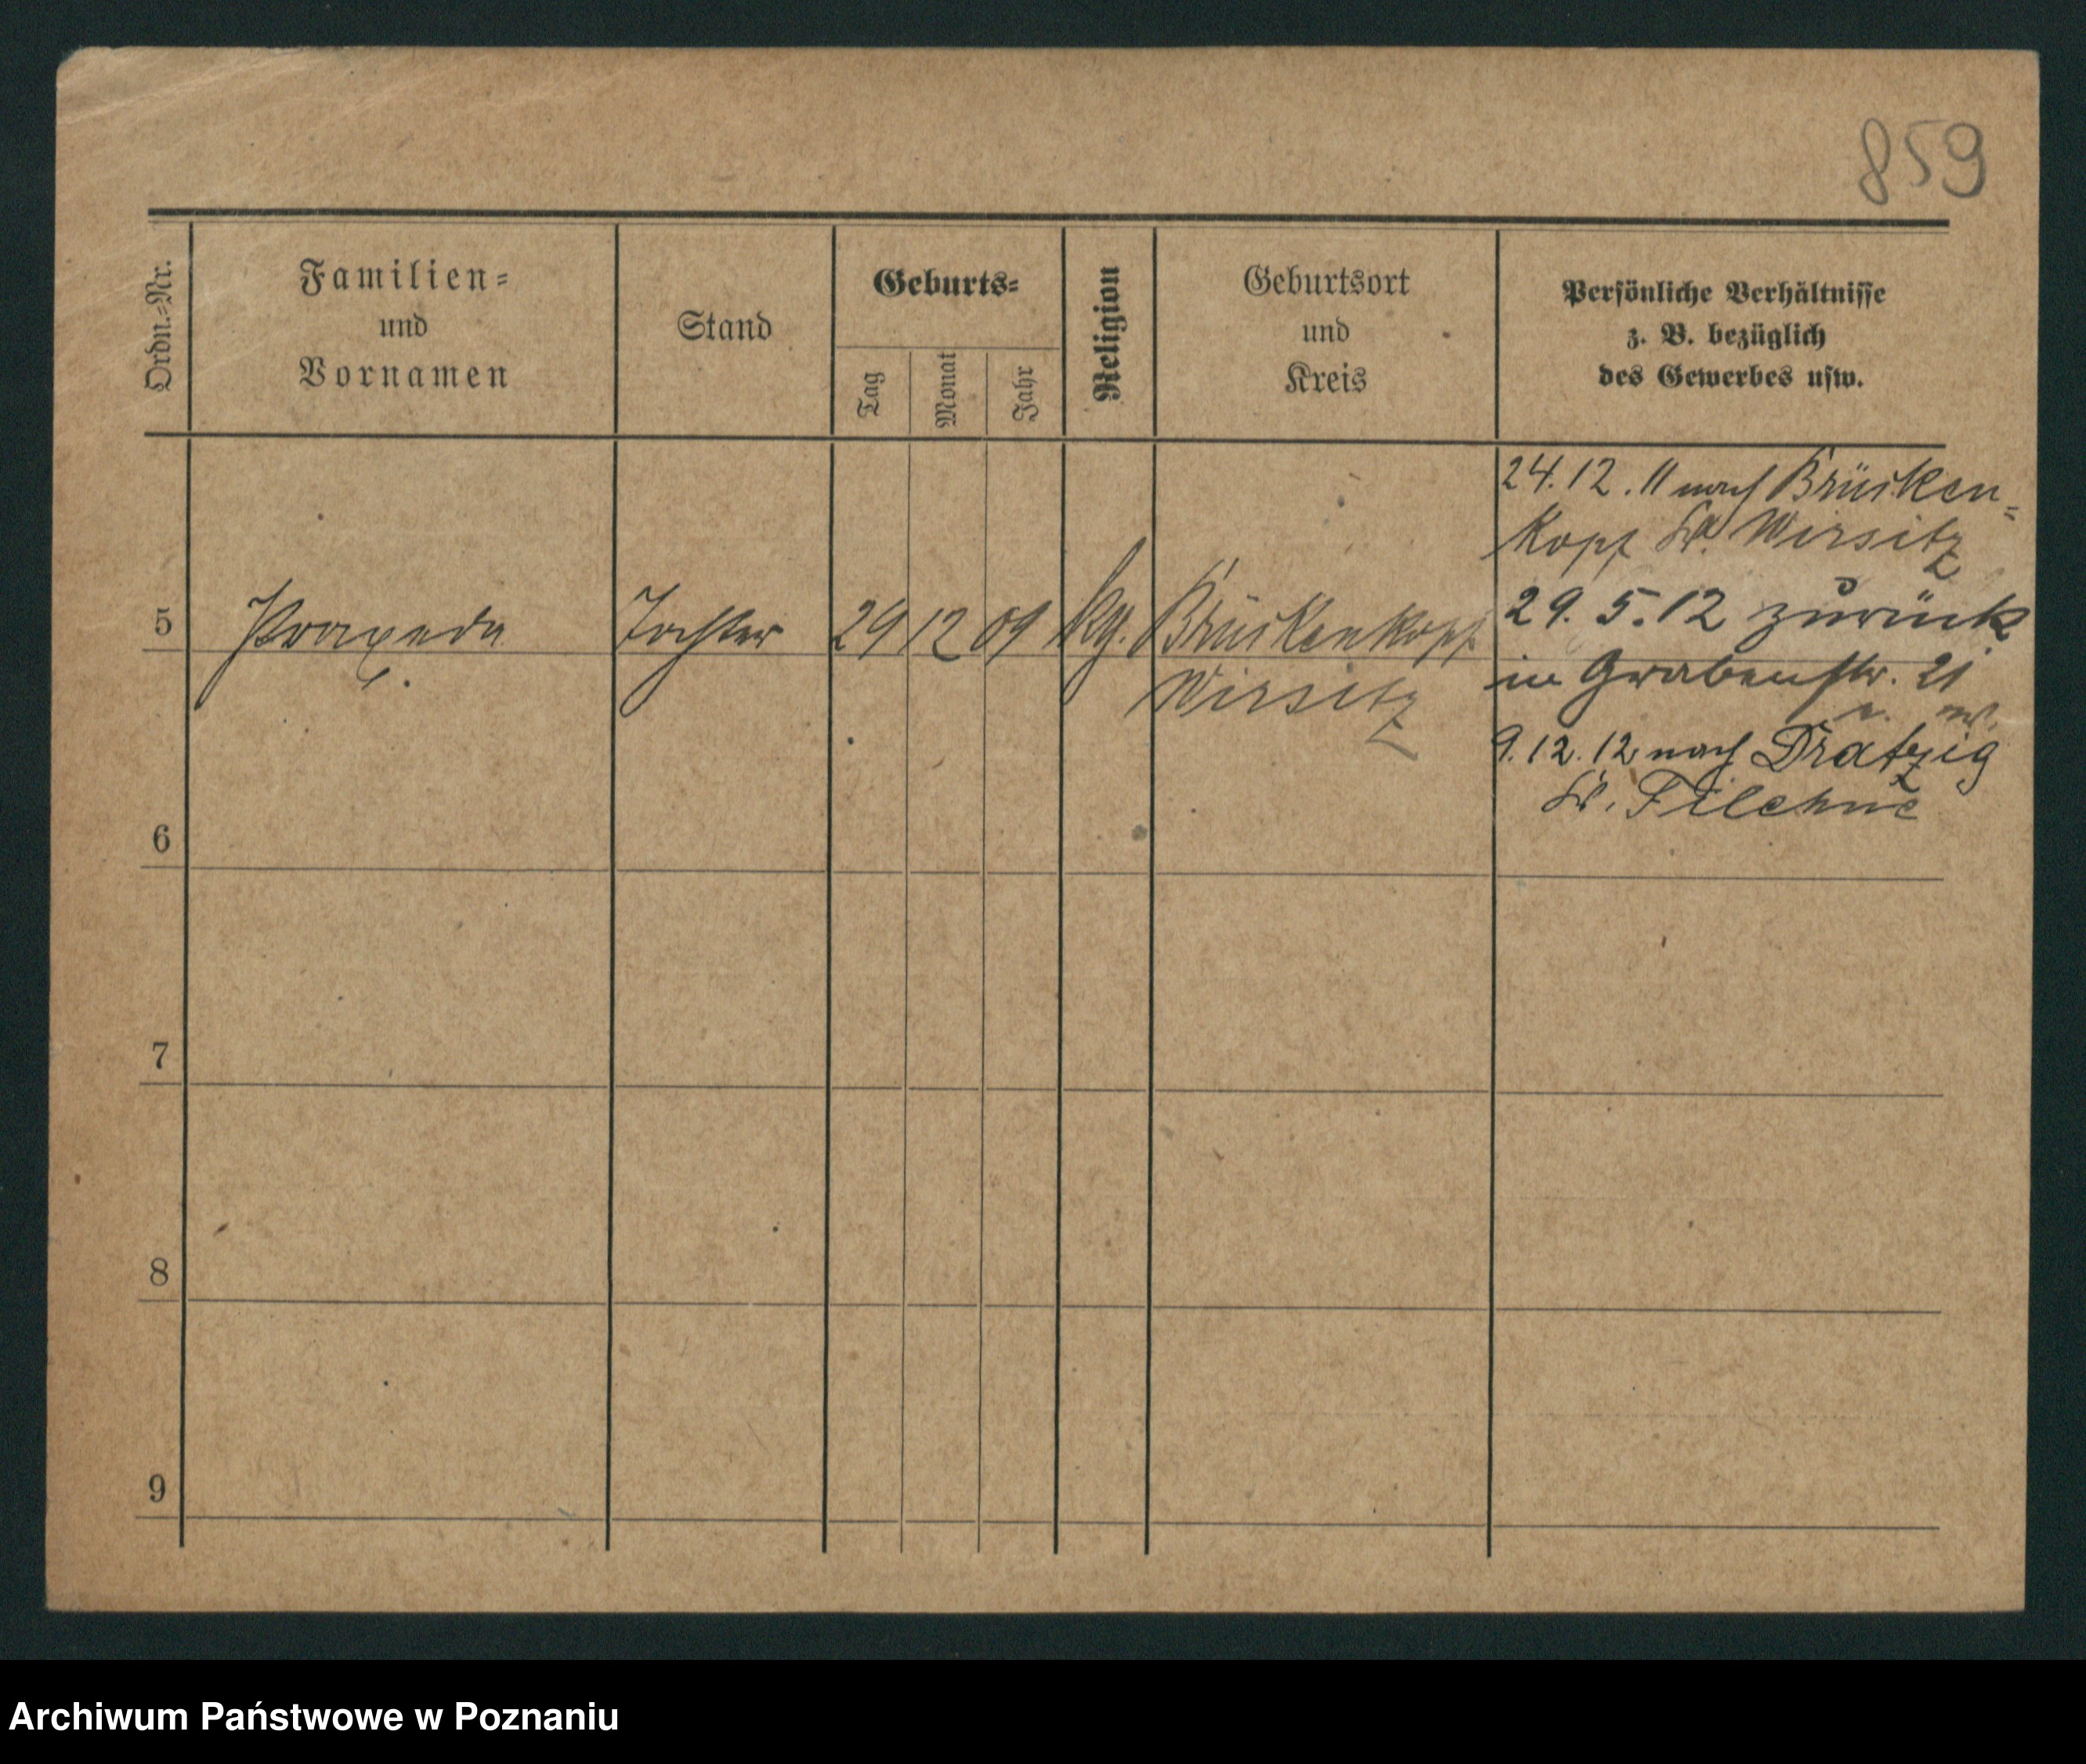 859
Ordn.-Nr.
Familien-
und
Vornamen
Stand
Geburts-
Tag
Monat
Jahr
Religion
Geburtsort
und
Kreis
Persönliche Verhältnisse
z. B. bezüglich
des Gewerbes usw.
5
Praxeda
Tochter
29
12
09
kg.
Brückenkopf
Wirsitz
24.12.11 nach Brücken-
kopf Kr. Wirsitz
29.5.12 zurück
in Grabenstr. 21
9.12.12 nach Dratzig
Kr. Filehne
6
7
8
9
Archiwum Państwowe w Poznaniu